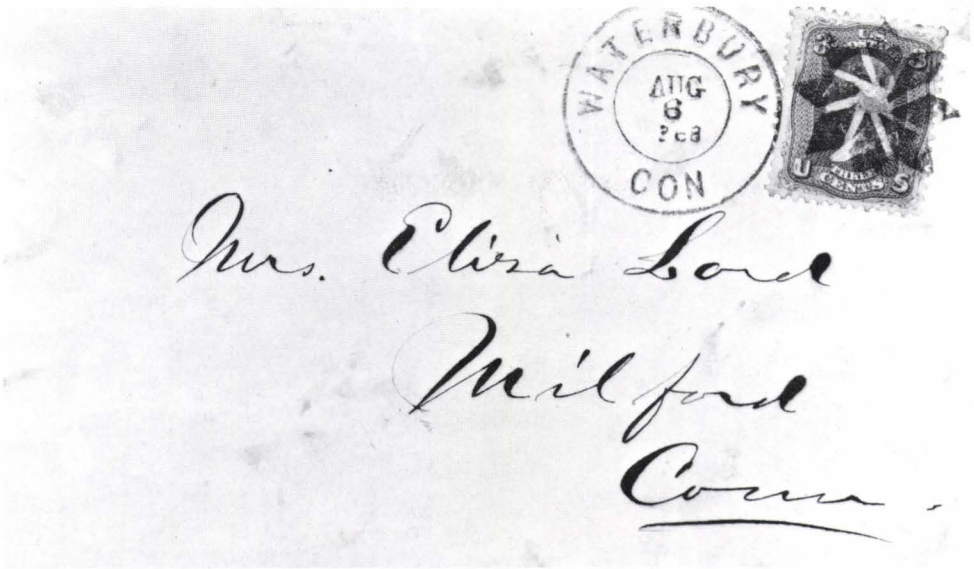 WATERBURY
AUG
6
CON
U.S.
POSTAGE
3 3
U S
THREE
CENTS
Mrs. Eliza Lord
Milford
Conn.